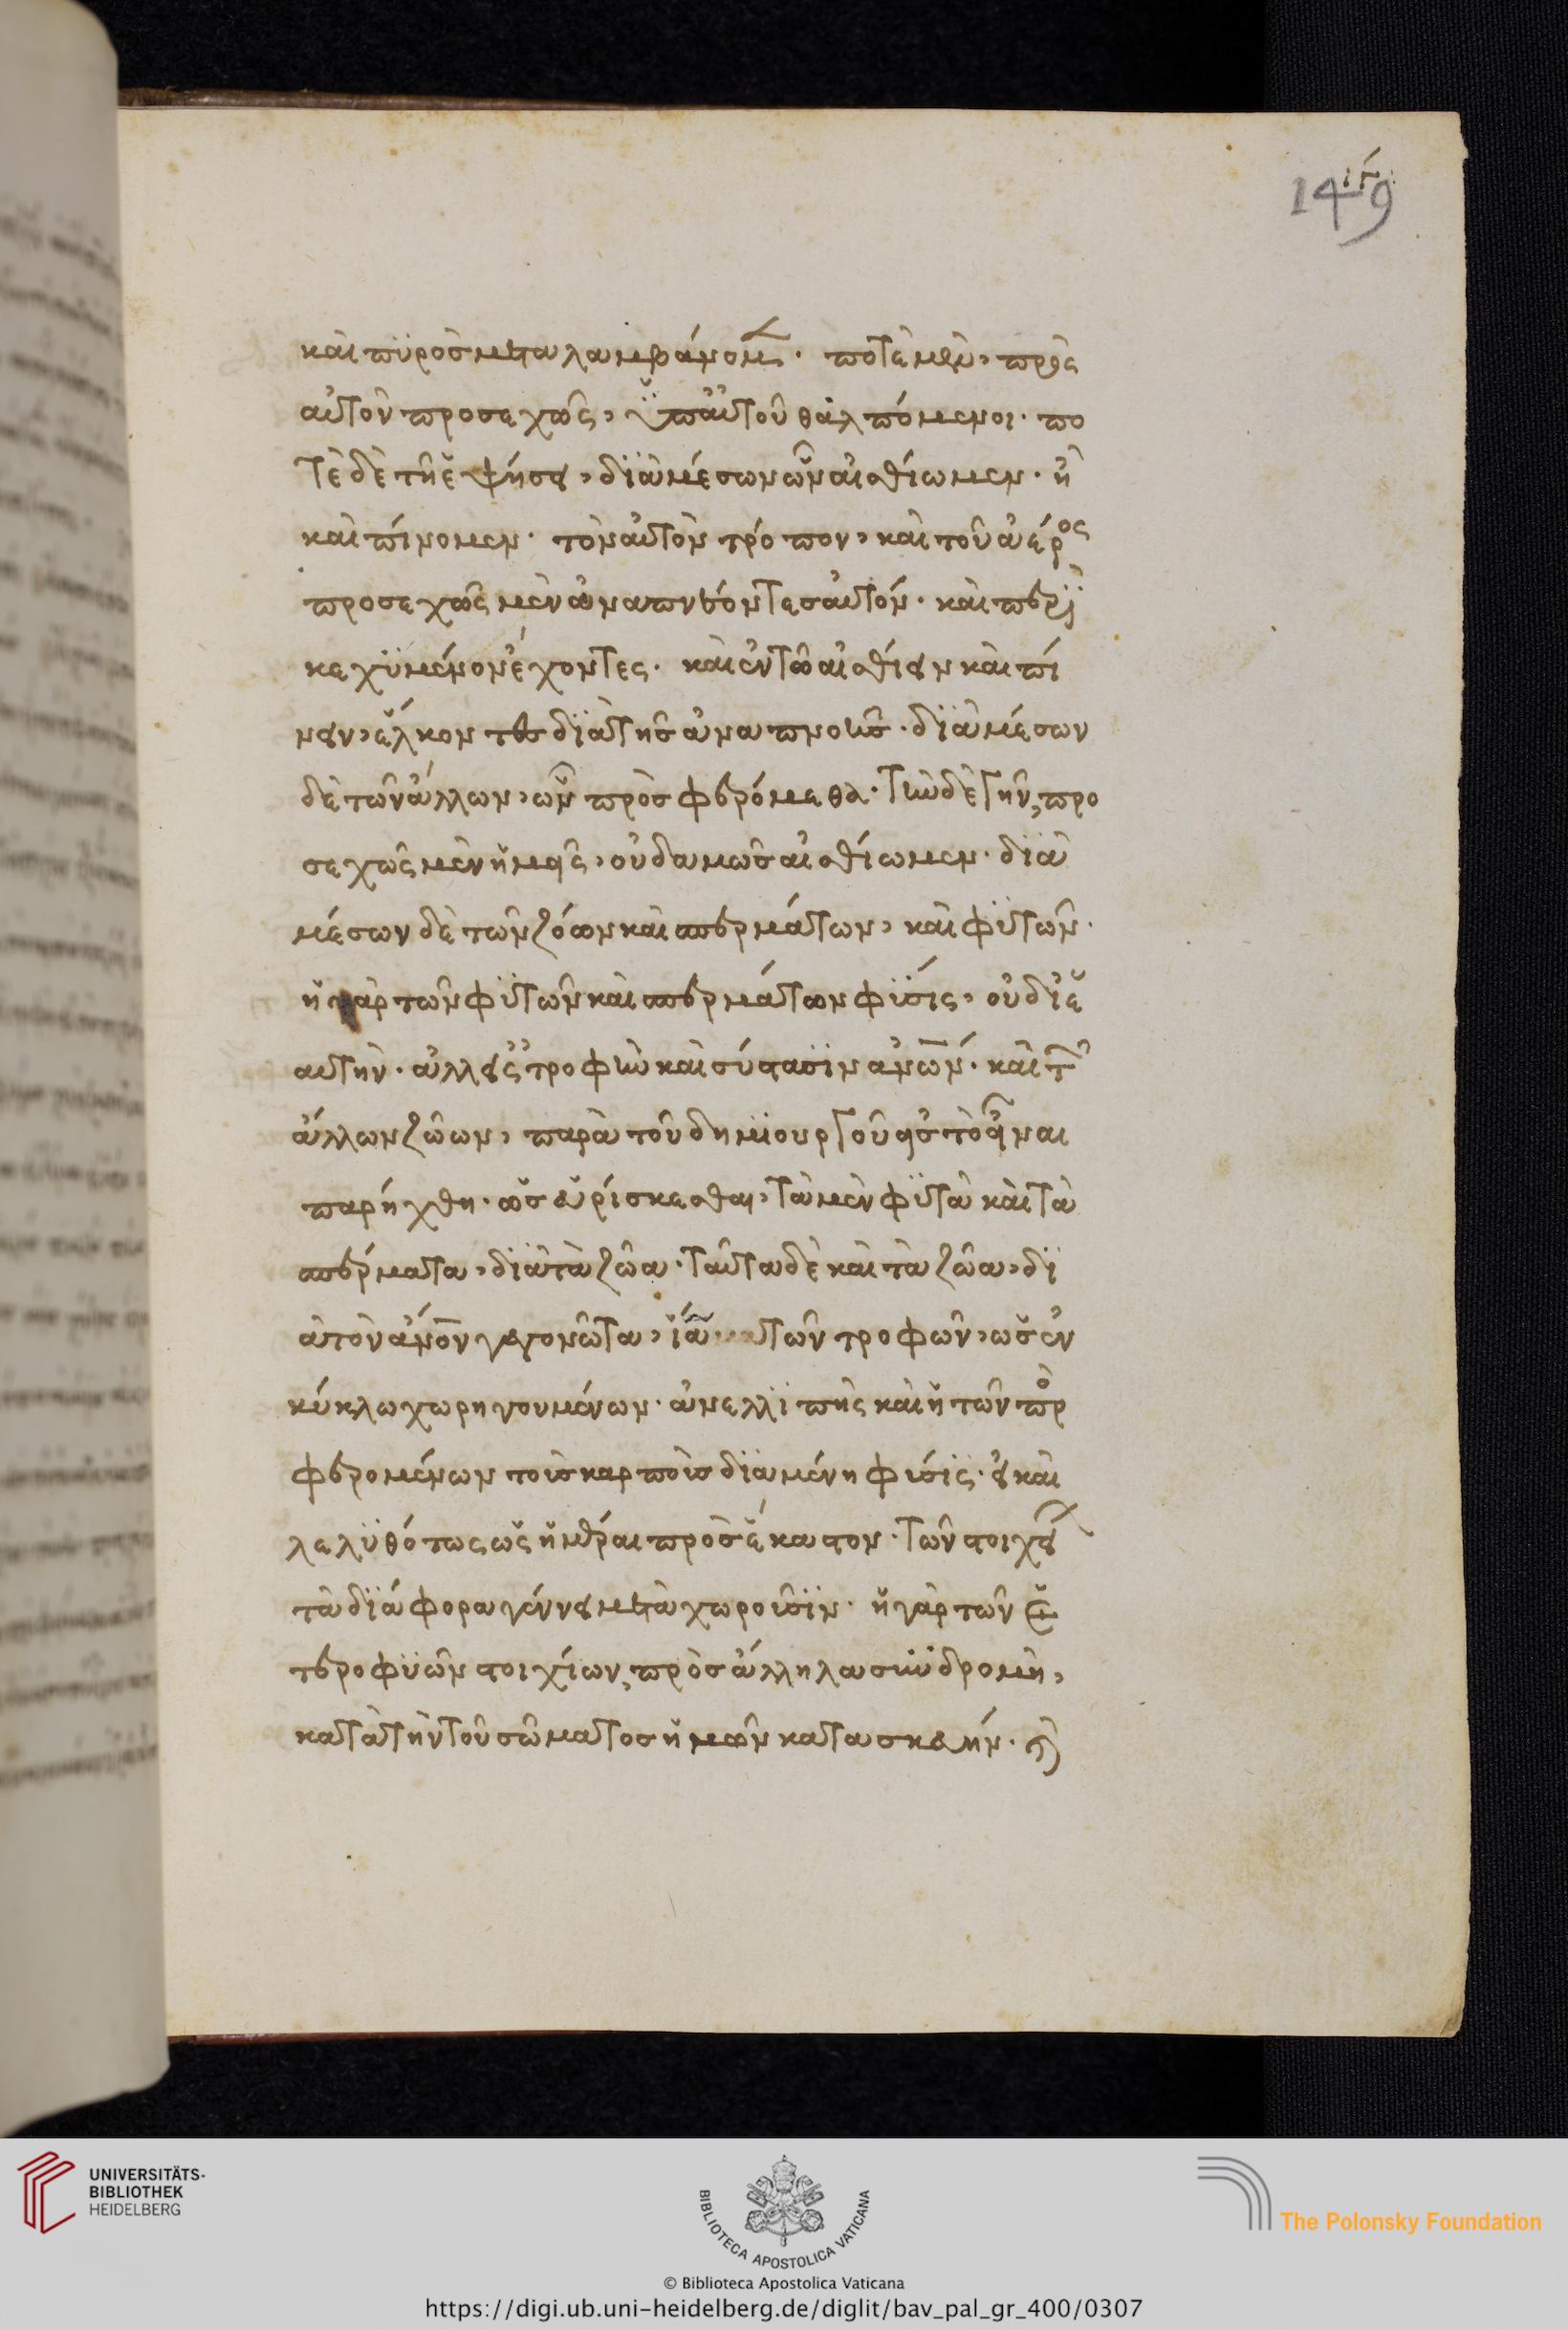 149
ιγ
καὶ πϋρὸσ μεταλαμβάνομ. ποτὲ μὲν, πρὸς
αὐτὸν προσεχῶς, ὑπ' αὐτοῦ θαλπόμενοι. πο
τὲ δὲ τῆ ἑψήσει, διὰ μέσων ὧν αἰσθίωμεν. ἢ
καὶ πίνομεν. τὸν αὐτὸν τρόπον, καὶ τοῦ ἀέρος
προσεχῶς μὲν ἀναπνέοντεσ αὐτόν. καὶ περὶ
κεχϋμένον ἔχοντες. καὶ ἐν τῶ αἰσθίειν καὶ πί
νειν, ἕλκοντεσ διὰ τῆσ ἀναπνοῆσ. διὰ μέσων
δὲ τῶν ἄλλων, ὧν πρὸσφερόμεθα. τὴν δὲ γῆν, προ
σεχῶς μὲν ἡμεῖς, οὐδαμῶσ αἰσθίωμεν. διὰ
μέσων δὲ τῶν ζόων καὶ σπερμάτων, καὶ φϋτῶν.
ἡ γὰρ τῶν φϋτῶν καὶ σπερμάτων φϋσις, οὐ δι' ἑ
αυτὴν. ἀλλ' εἰς τροφὴν καὶ σύστασϊν ἀνων. καὶ τ
ἄλλων ζώων, παρὰ τοῦ δημϊουργοῦ εἰσ τὸ εἶναι
παρήχθη. ὡσ εὑρίσκεσθαι, τὰ μὲν φϋτὰ καὶ τὰ
σπέρματα, διὰ τὰ ζῶα. ταῦτα δὲ καὶ τὰ ζῶα, δϊ
ὰ τὸν ἄνον γεγονῶτα, τῶν τροφῶν, ὡσ ἐν
κύκλω χωρηγουμένων. ἀνελλϊπὴς καὶ ἡ τῶν πρ
φερομένων τοῖσ καρποῖσ διαμένη φύσϊς. εἰ καὶ
λελϋθότως ὡς ἡμέραι πρὸσ ἕκαστον. τῶν στοιχεί
τὰ διάφορα γέννει μεταχωροῦσϊν. ἡ γὰρ τῶν ἑ
τεροφϋῶν στοιχίων, πρὸσ ἄλληλα συνδρομὴ,
κατὰ τὴν τοῦ σώματοσ ἡμῶν κατασκευήν.
UNIVERSITÄTS-
BIBLIOTHEK
HEIDELBERG
BIBLIOTECA APOSTOLICA VATICANA
The Polonsky Foundation
© Biblioteca Apostolica Vaticana
https://digi.ub.uni-heidelberg.de/diglit/bav_pal_gr_400/0307